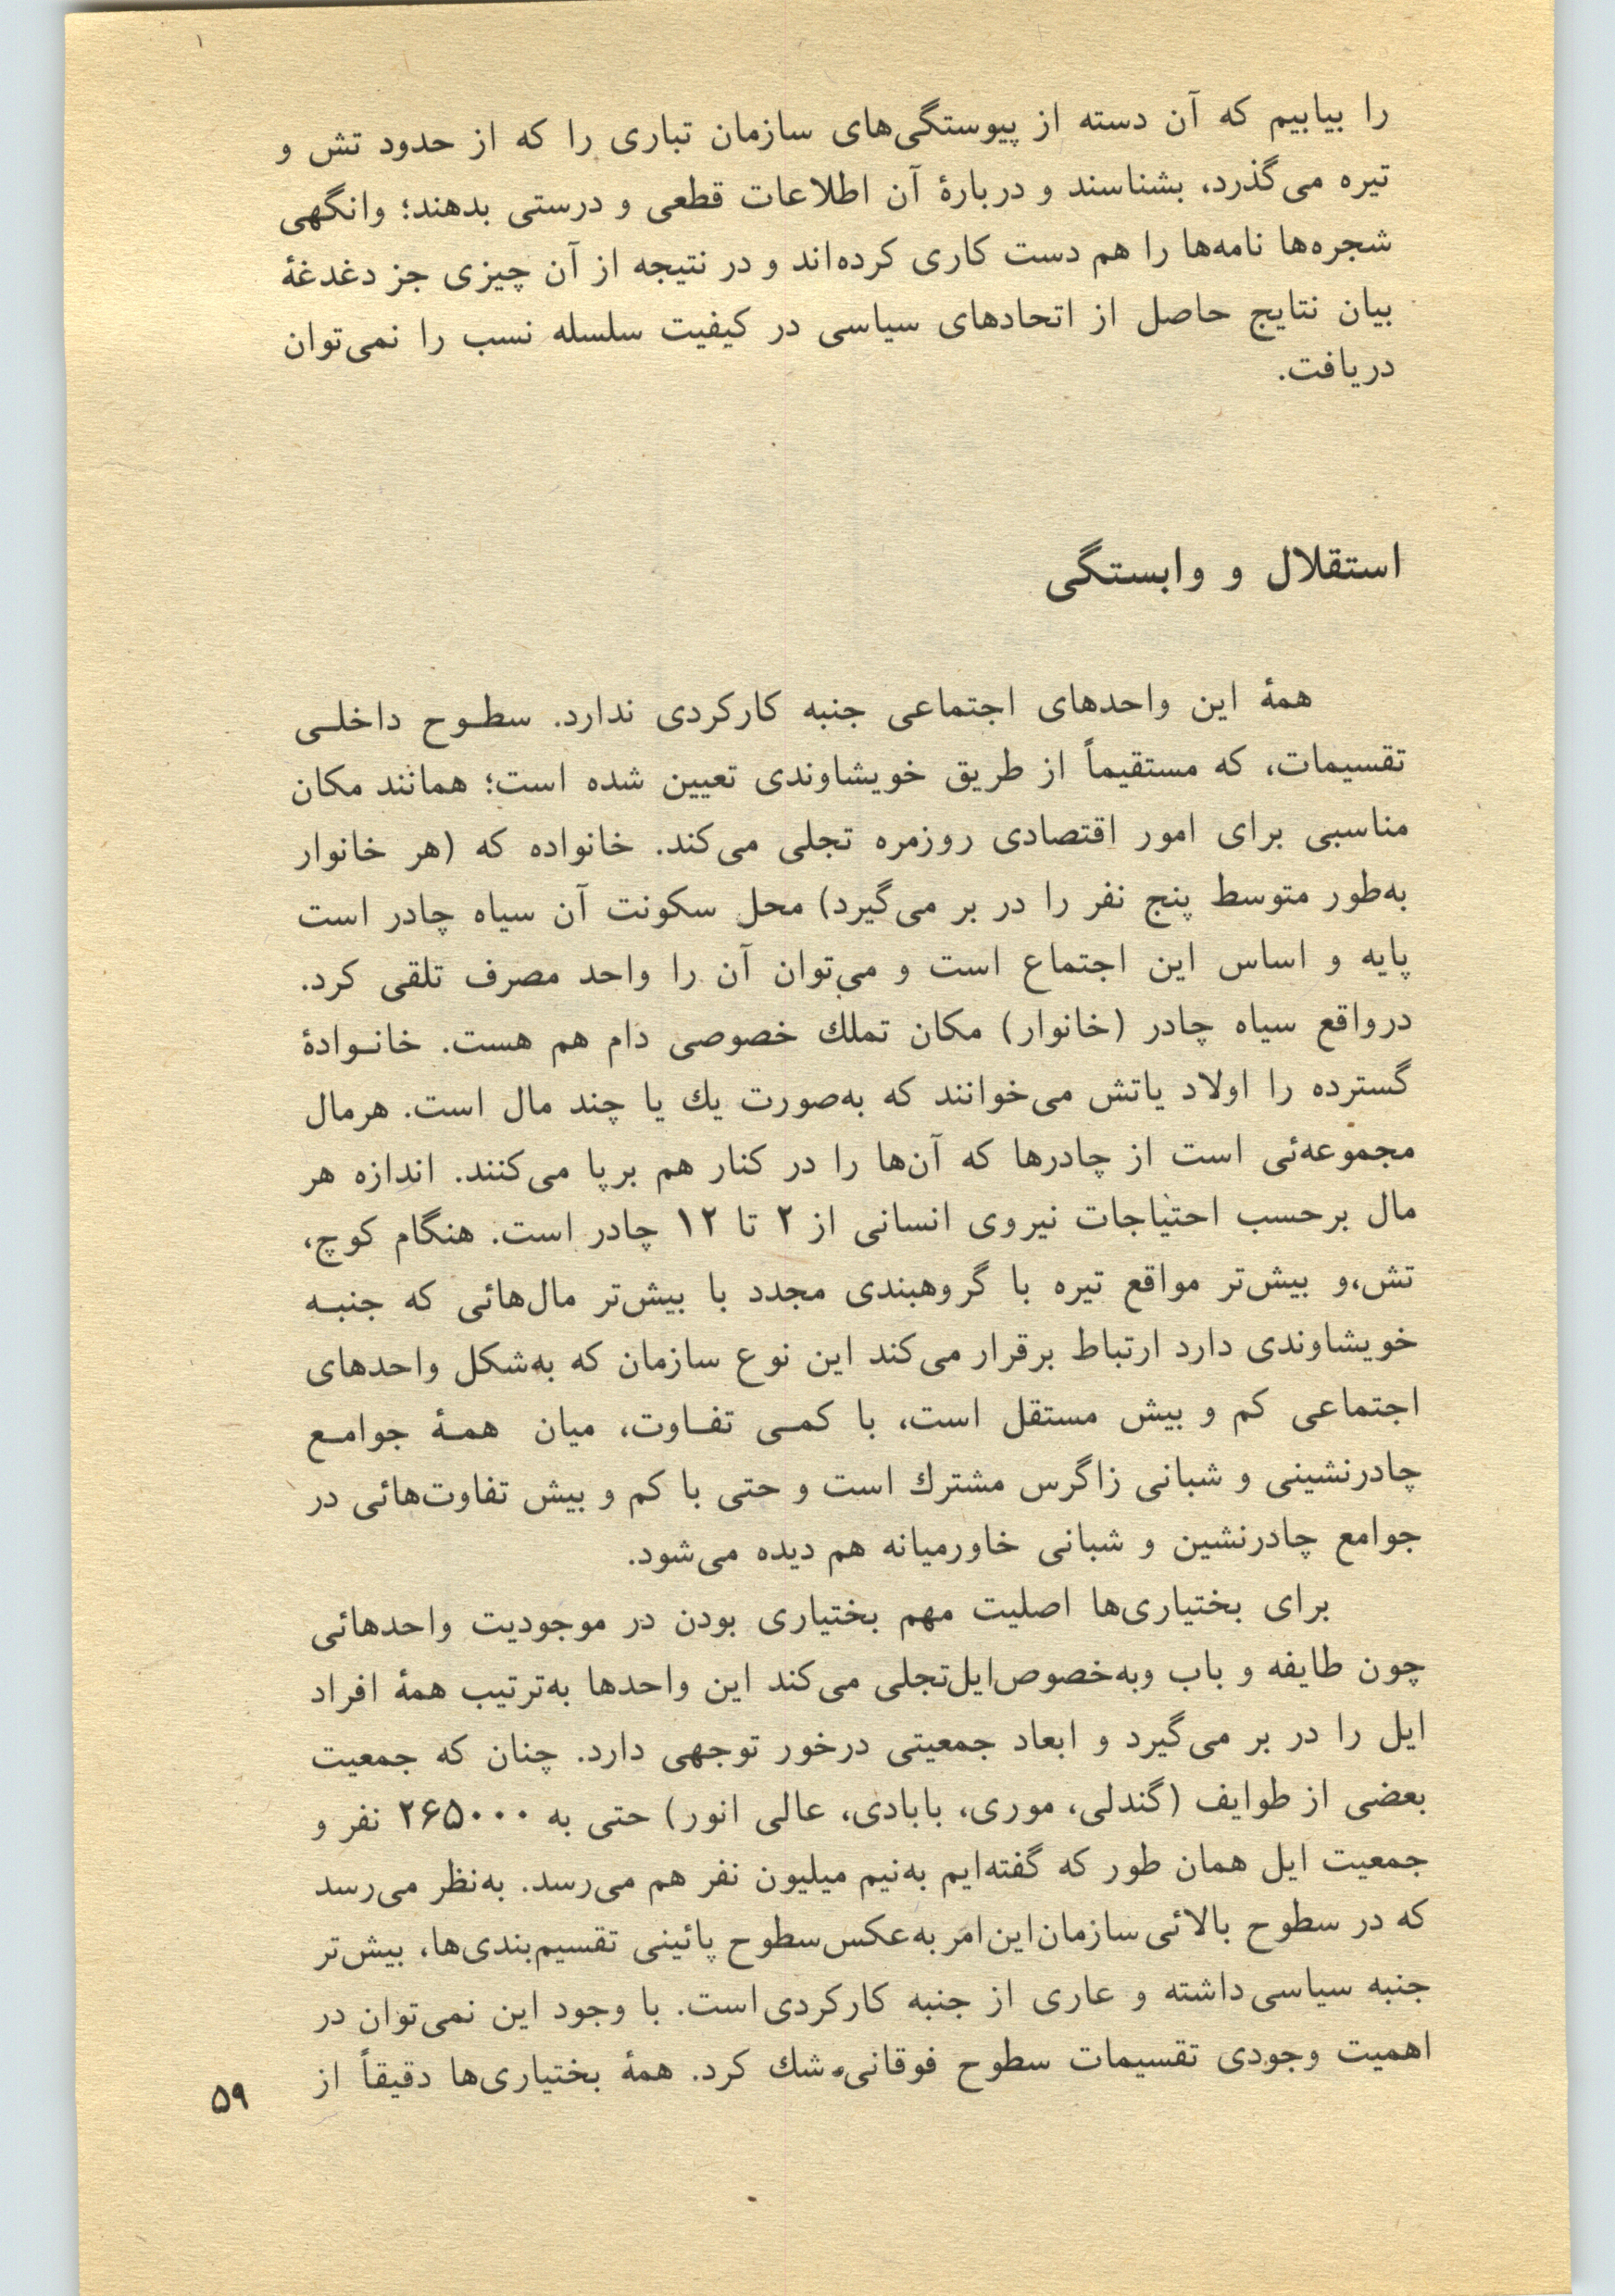 را بیابیم که آن دسته از پیوستگی‌های سازمان تباری را که از حدود تش و
تیره می‌گذرد، بشناسند و دربارهٔ آن اطلاعات قطعی و درستی بدهند؛ وانگهی
شجره‌ها نامه‌ها را هم دست کاری کرده‌اند و در نتیجه از آن چیزی جز دغدغهٔ
بیان نتایج حاصل از اتحادهای سیاسی در کیفیت سلسله نسب را نمی‌توان
دریافت.
استقلال و وابستگی
همهٔ این واحدهای اجتماعی جنبه کارکردی ندارد. سطوح داخلی
تقسیمات، که مستقیماً از طریق خویشاوندی تعیین شده است؛ همانند مکان
مناسبی برای امور اقتصادی روزمره تجلی می‌کند. خانواده که (هر خانوار
به‌طور متوسط پنج نفر را در بر می‌گیرد) محل سکونت آن سیاه چادر است
پایه و اساس این اجتماع است و می‌توان آن را واحد مصرف تلقی کرد.
درواقع سیاه چادر (خانوار) مکان تملك خصوصی دام هم هست. خانوادهٔ
گسترده را اولاد یاتش می‌خوانند که به‌صورت یك یا چند مال است. هرمال
مجموعه‌ئی است از چادرها که آن‌ها را در کنار هم برپا می‌کنند. اندازه هر
مال برحسب احتیاجات نیروی انسانی از ۲ تا ۱۲ چادر است. هنگام کوچ،
تش،و بیش‌تر مواقع تیره با گروهبندی مجدد با بیش‌تر مال‌هائی که جنبه
خویشاوندی دارد ارتباط برقرار می‌کند این نوع سازمان که به‌شکل واحدهای
اجتماعی کم و بیش مستقل است، با کمی تفاوت، میان همهٔ جوامع
چادرنشینی و شبانی زاگرس مشترك است و حتی با کم و بیش تفاوت‌هائی در
جوامع چادرنشین و شبانی خاورمیانه هم دیده می‌شود.
برای بختیاری‌ها اصلیت مهم بختیاری بودن در موجودیت واحدهائی
چون طایفه و باب وبه‌خصوص‌ایل‌تجلی می‌کند این واحدها به‌ترتیب همهٔ افراد
ایل را در بر می‌گیرد و ابعاد جمعیتی درخور توجهی دارد. چنان که جمعیت
بعضی از طوایف (گندلی، موری، بابادی، عالی انور) حتی به ۲۶۵۰۰۰ نفر و
جمعیت ایل همان طور که گفته‌ایم به‌نیم میلیون نفر هم می‌رسد. به‌نظر می‌رسد
که در سطوح بالائی سازمان این امر به‌عکس سطوح پائینی تقسیم‌بندی‌ها، بیش‌تر
جنبه سیاسی داشته و عاری از جنبه کارکردی است. با وجود این نمی‌توان در
اهمیت وجودی تقسیمات سطوح فوقانی شك کرد. همهٔ بختیاری‌ها دقیقاً از
۵۹